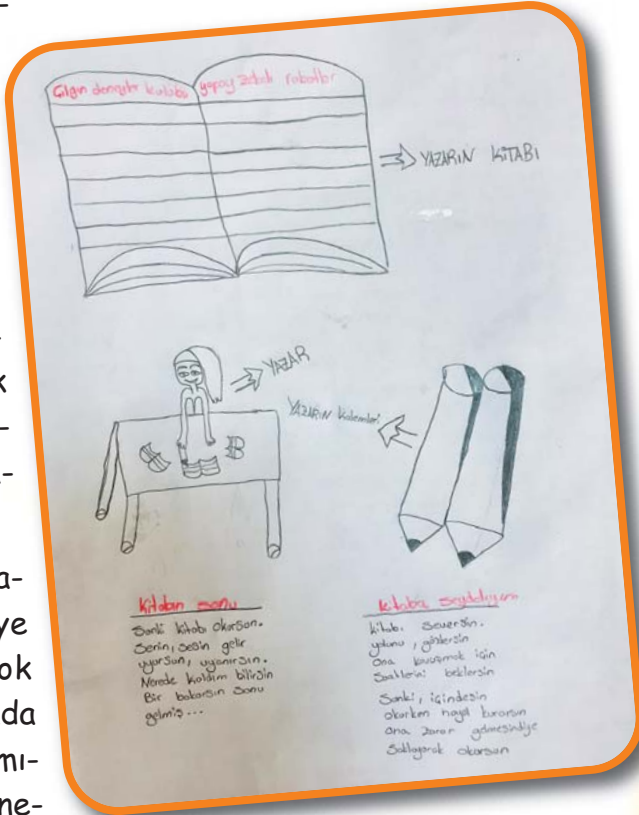 Çılgın dengeler kulübü
yapay zekalı robotlar
YAZARIN KİTABI
YAZAR
YAZARIN kalemleri
kitabın sonu
Sanki kitabı okursun.
Serin, sesin gelir
uyursun, uyanırsın.
Nerede kaldım bilirsin
Bir bakarsın sonu
gelmiş...
kitaba
kitabı seversin.
yolunu, gözlersin
ona kavuşmak için
Saatlerini beklersin
Sanki, içindesin
okurken hayal kurarsın
ona zarar gelmesindiye
Saklayarak okursun
k
-
a-
ye
ok
da
mı-
ne-